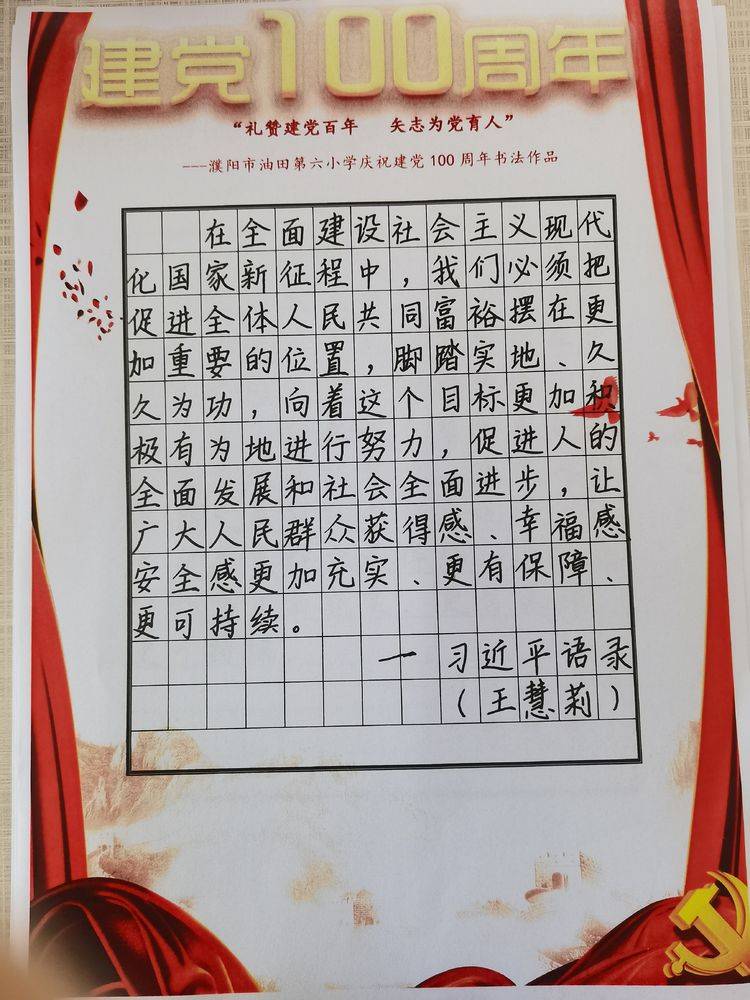 建党100周年
“礼赞建党百年 矢志为党育人”
---濮阳市油田第六小学庆祝建党100周年书法作品
在全面建设社会主义现代
化国家新征程中，我们必须把
促进全体人民共同富裕摆在更
加重要的位置，脚踏实地、久
久为功，向着这个目标更加积
极有为地进行努力，促进人的
全面发展和社会全面进步，让
广大人民群众获得感、幸福感
安全感更加充实、更有保障、
更可持续。
一 习近平语录
（王慧莉）